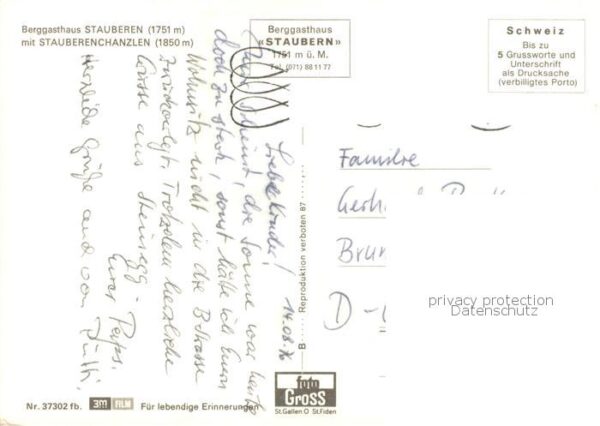 Berggasthaus STAUBEREN (1751 m)
mit STAUBERENCHANZLEN (1850 m)
Berggasthaus
«STAUBERN»
1751 m ü. M.
Tel. (071) 88 11 77
Schweiz
Bis zu
5 Grussworte und
Unterschrift
als Drucksache
(verbilligtes Porto)
14.08.76
Liebe Kinder!
scheint, die Sonne war heute
doch zu stark, sonst hätte ich Euren
Wohnsitz nicht in die B-strasse
zurückverlegt. Trotzdem herzliche
Grüsse aus Steinegg -
Eurer
Herzliche Grüße auch von
Familie
Brun
D-
privacy protection
Datenschutz
B Reproduktion verboten 87
foto
Gross
St.Gallen O St.Fiden
Nr. 37302 fb. 3M FILM Für lebendige Erinnerungen